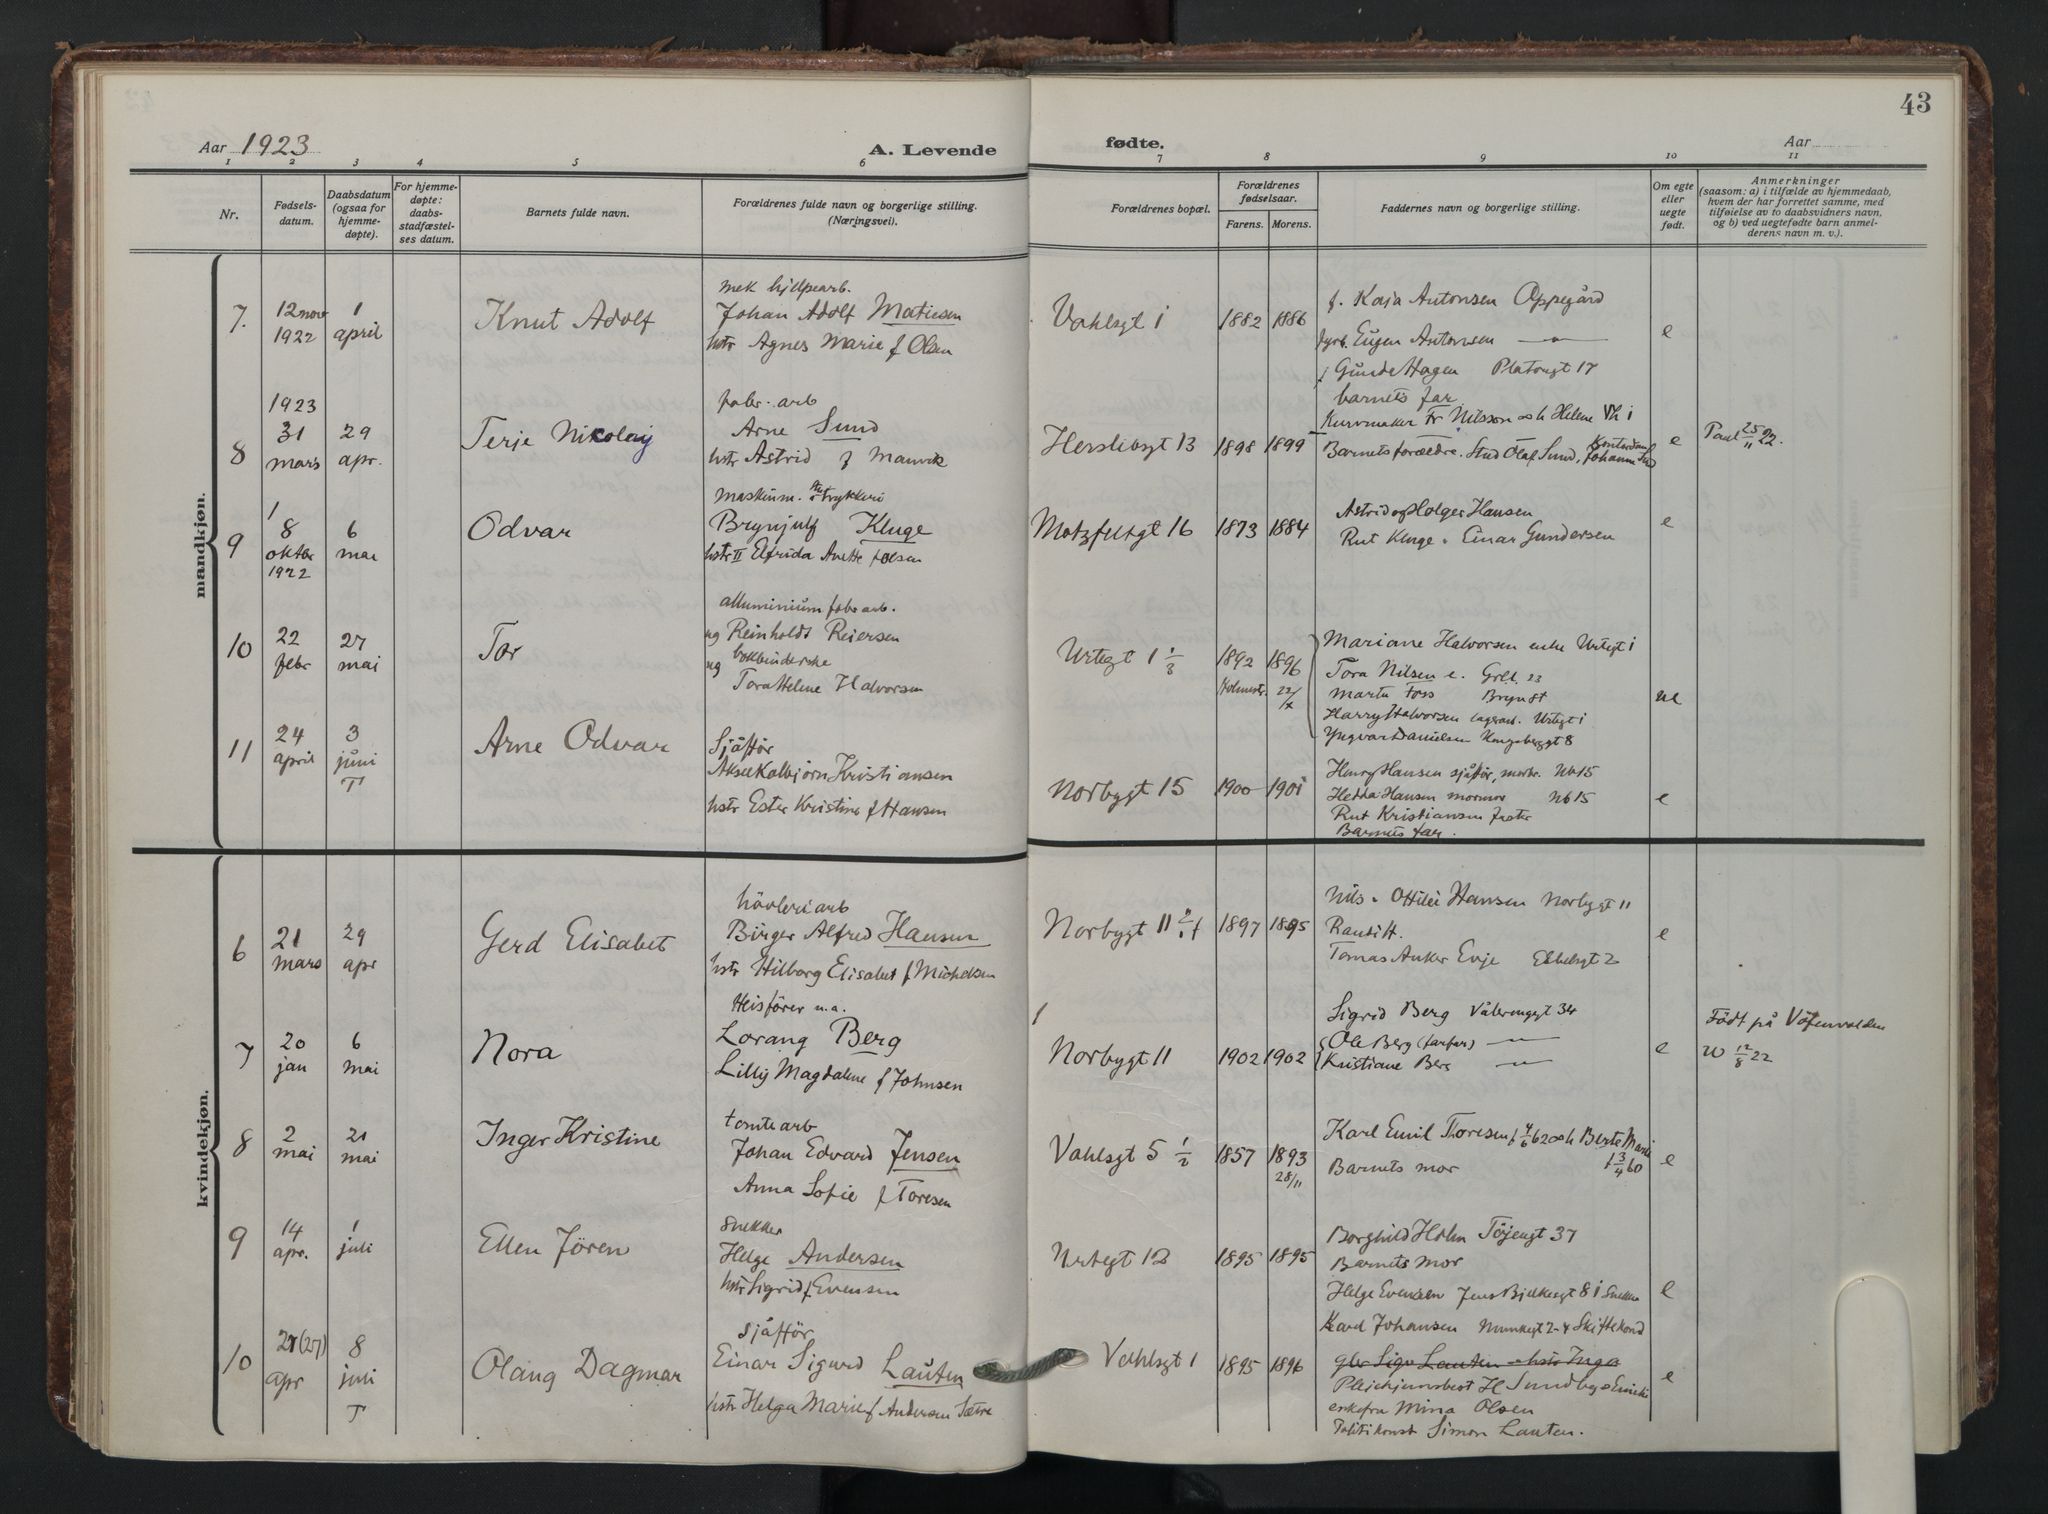 43
Aar 1923
A. Levende
fødte.
Aar
1 2 3 4 5 6 7 8 9 10 11
Nr.
Fødsels-
datum.
Daabsdatum
(ogsaa for
hjemme-
døpte).
For hjemme-
døpte:
daabs-
stadfæstel-
ses datum.
Barnets fulde navn.
Forældrenes fulde navn og borgerlige stilling.
(Næringsvei).
Forældrenes bopæl.
Forældrenes
fødselsaar.
Farens. Morens.
Faddernes navn og borgerlige stilling.
Om egte
eller
uegte
født.
Anmerkninger
(saasom: a) i tilfælde av hjemmedaab,
hvem der har forrettet samme, med
tilføielse av to daabsvidners navn,
og b) ved uegtefødte barn anmel-
derens navn m. v.).
mandkjøn.
7. 12 nov 1922
1 april
Knut Adolf
mek hjelpearb.
Johan Adolf Matiesen
hstr Agnes Marie f Olsen
Vahlsgt 1
1882 1886
f. Kaja Antonsen Oppegård
fyrb. Eugen Antonsen —"—
f Gunda Hagen Platougt 17
barnets far
e
8 1923 31 mars
29 apr.
Terje Nikolaij
fabr. arb
Arne Sund
hstr Astrid f Manvik
Herslebsgt 13
1898 1899
Kurvmaker Fr Nilsson og h Helene Vh 1
Barnets forældre. Stud Olaf Sund, Johanne Sund
e
Paul 25/11 22.
9 8 oktbr 1922
6 mai
Odvar
maskinm. trykkeri
Brynjulf Kluge
hstr II Elfrida Anette f Olsen
Motzfeltsgt 16
1873 1884
Astrid og Holger Hansen
Rut Kluge. Einar Gundersen
e
10 22 febr
27 mai
Tor
alluminium fabr arb.
ug Reinholdt Reiersen
ug bokbinderske
Tora Helene Halvorsen
Urtegt 1 1/3
1892 1896
Holmestr. 22/x
Mariane Halvorsen enke Urtegt 1
Tora Nilsen e. Grll. 23
Marta Foss Bryn st
Harry Halvorsen lagerarb. Urtegt 1
Yngvar Danielsen Kongsberggt 8
ue
11 24 april
3 juni T
Arne Odvar
Sjåffør
Aksel Kolbjørn Kristiansen
hstr Ester Kristine f Hansen
Norbygt 15
1900 1901
Henry Hansen sjåffør, morbr. Nb 15
Hedda Hansen mormor Nb 15
Rut Kristiansen faster
Barnets far.
e
kvindekjøn.
6 21 mars
29 apr
Gerd Elisabet
høvleriarb
Birger Alfred Hansen
hstr Hilborg Elisabet f Michelsen
Norbygt 11
1897 1895
Nils. Ottilie Hansen Norbygt 11
Randi H.
Tomas Anker Evje
e
7 20 jan
6 mai
Nora
Heisfører u.a.
Lorang Berg
Lilly Magdalene f Johnsen
Norbygt 11
1902 1902
Sigrid Berg Vålerengt 34
Ole Berg (farfar) —"—
Kristiane Berg —"—
e
Født på
12/8 22
8 2 mai
21 mai
Inger Kristine
tomtearb
Johan Edvard Jensen
Anna Sofie f Toresen
Vahlsgt 5 1/2
1857 1893
28/11
Karl Emil Thoresen f 4/6 62 og h Berte Marie
f 3/4 60
Barnets mor
e
9 14 apr.
1 juli
Ellen Jören
Snekker
Helge Andersen
hstr Sigrid f Evensen
Urtegt 12
1895 1895
Borghild Holm Töjengt 37
Barnets mor
Helge Evensen Jens Bjelkesgt 81 Snekker
Karl Johansen Munkegt 2-4 Skiftekond
e
10 21 (27) apr
8 juli T
Olaug Dagmar
sjåffør
Einar Sigurd Lauten
hstr Helga Marie f Andersen Sætre
Vahlsgt 1
1895 1896
gbr Sigv Lauten hstr Inga
H Sundby
enkefru Mina Olsen
Politikonst Simon Lauten.
e